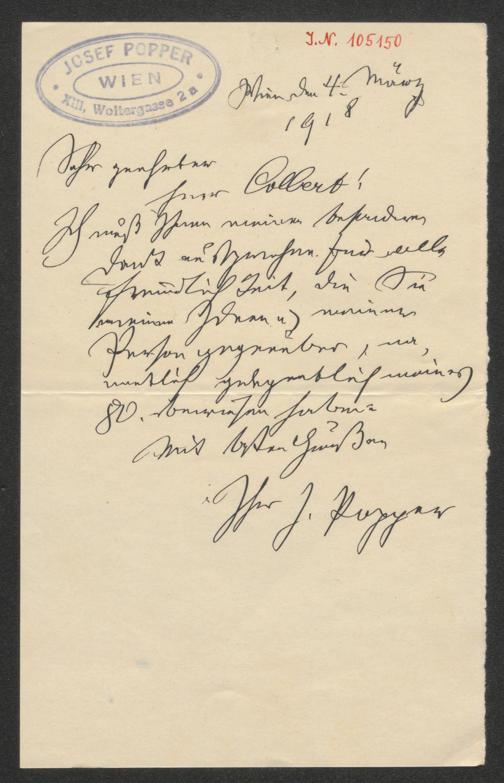 JOSEF POPPER
WIEN
XIII, Woltergasse 2a
J.N. 105150
Wien den 4. März
1918
Sehr geehrter
Herr Colbert!
Ich muß Ihnen meinen besonderen
Dank aussprechen für alle
Freundlichkeit, die Sie
meinen Ideen u) meiner
Person gegenüber, na„
mentlich gelegentlich meines
80. bewiesen haben.
Mit besten Grüßen
Ihr J. Popper